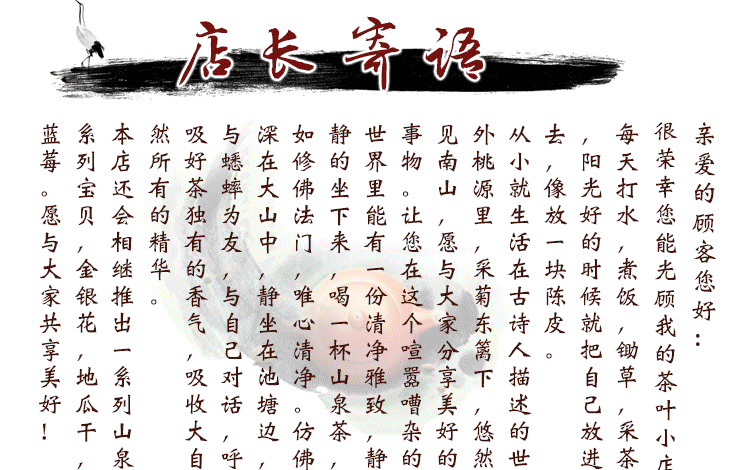 店长寄语
亲爱的顾客您好：
很荣幸您能光顾我的茶叶小店
每天打水，煮饭，锄草，采茶
，阳光好的时候就把自己放进
去，像放一块陈皮。
从小就生活在古诗人描述的世
外桃源里，采菊东篱下，悠然
见南山，愿与大家分享美好的
事物。让您在这个喧嚣嘈杂的
世界里能有一份清净雅致，静
静的坐下来，喝一杯山泉茶，
如修佛法门，唯心清净。仿佛
深在大山中，静坐在池塘边，
与蟋蟀为友，与自己对话，呼
吸好茶独有的香气，吸收大自
然所有的精华。
本店还会相继推出一系列山泉
系列宝贝，金银花，地瓜干，
蓝莓。愿与大家共享美好！